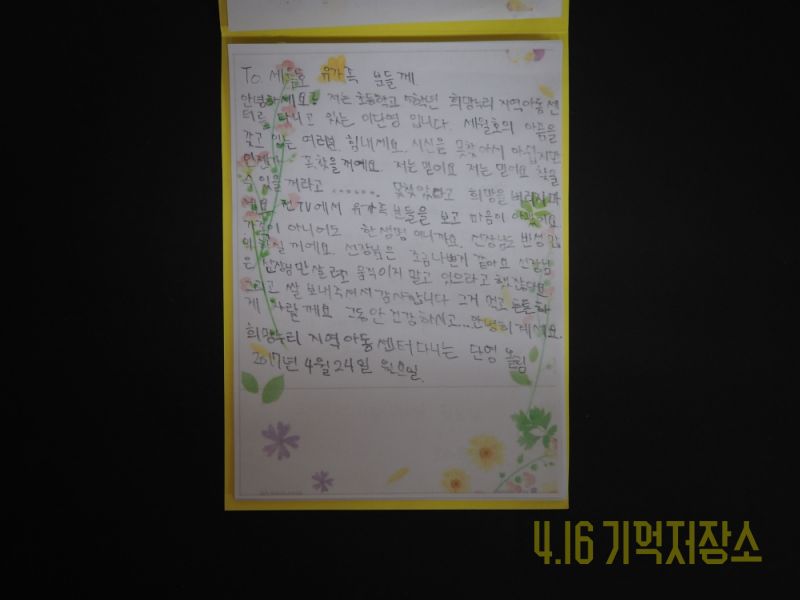 To. 세월호 유가족 분들께
안녕하세요! 저는 초등학교 5학년 희망누리 지역아동센
터를 다니고 있는 이단영 입니다. 세월호의 아픔을
갖고 있는 여러분 힘내세요. 시신을 못찾아서 아쉽지만
언젠가 꼭찾을꺼예요. 저는 믿어요 저는 믿어요 찾을
수 있을 꺼라고 ....... 못찾았다고 희망을 버리지마
세요. 전 TV에서 유가족 분들을 보고 마음이 아팠어요
가족이 아니어도 한 생명 이니까요. 선장님도 반성 깊
이 하실 꺼예요. 선장님은 조금나쁜거 같아요 선장님
은 선장님만 살려고 움직이지 말고 있으라고 했잖아요
그리고 쌀 보내주셔서 감사합니다 그거 먹고 튼튼하
게 자랄께요 그동안 건강하시고...안녕히계세요.
희망누리 지역아동센터다니는 단영 올림
2017년 4월 24일 월요일.
4.16 기억저장소